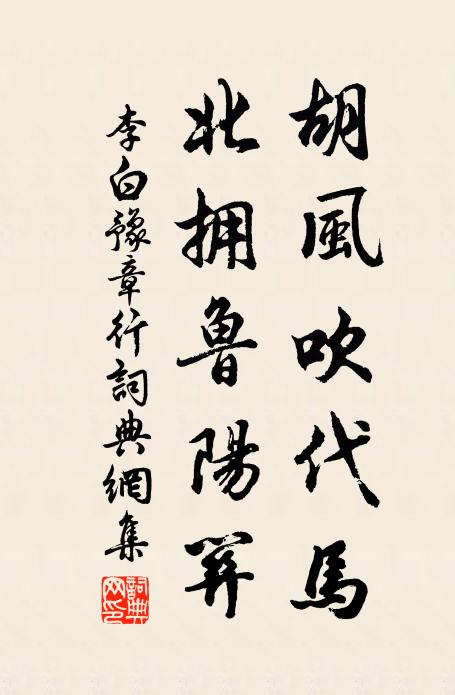 胡風吹代馬
北拥鲁陽關
李白豫章行詞典網集
詞典網印